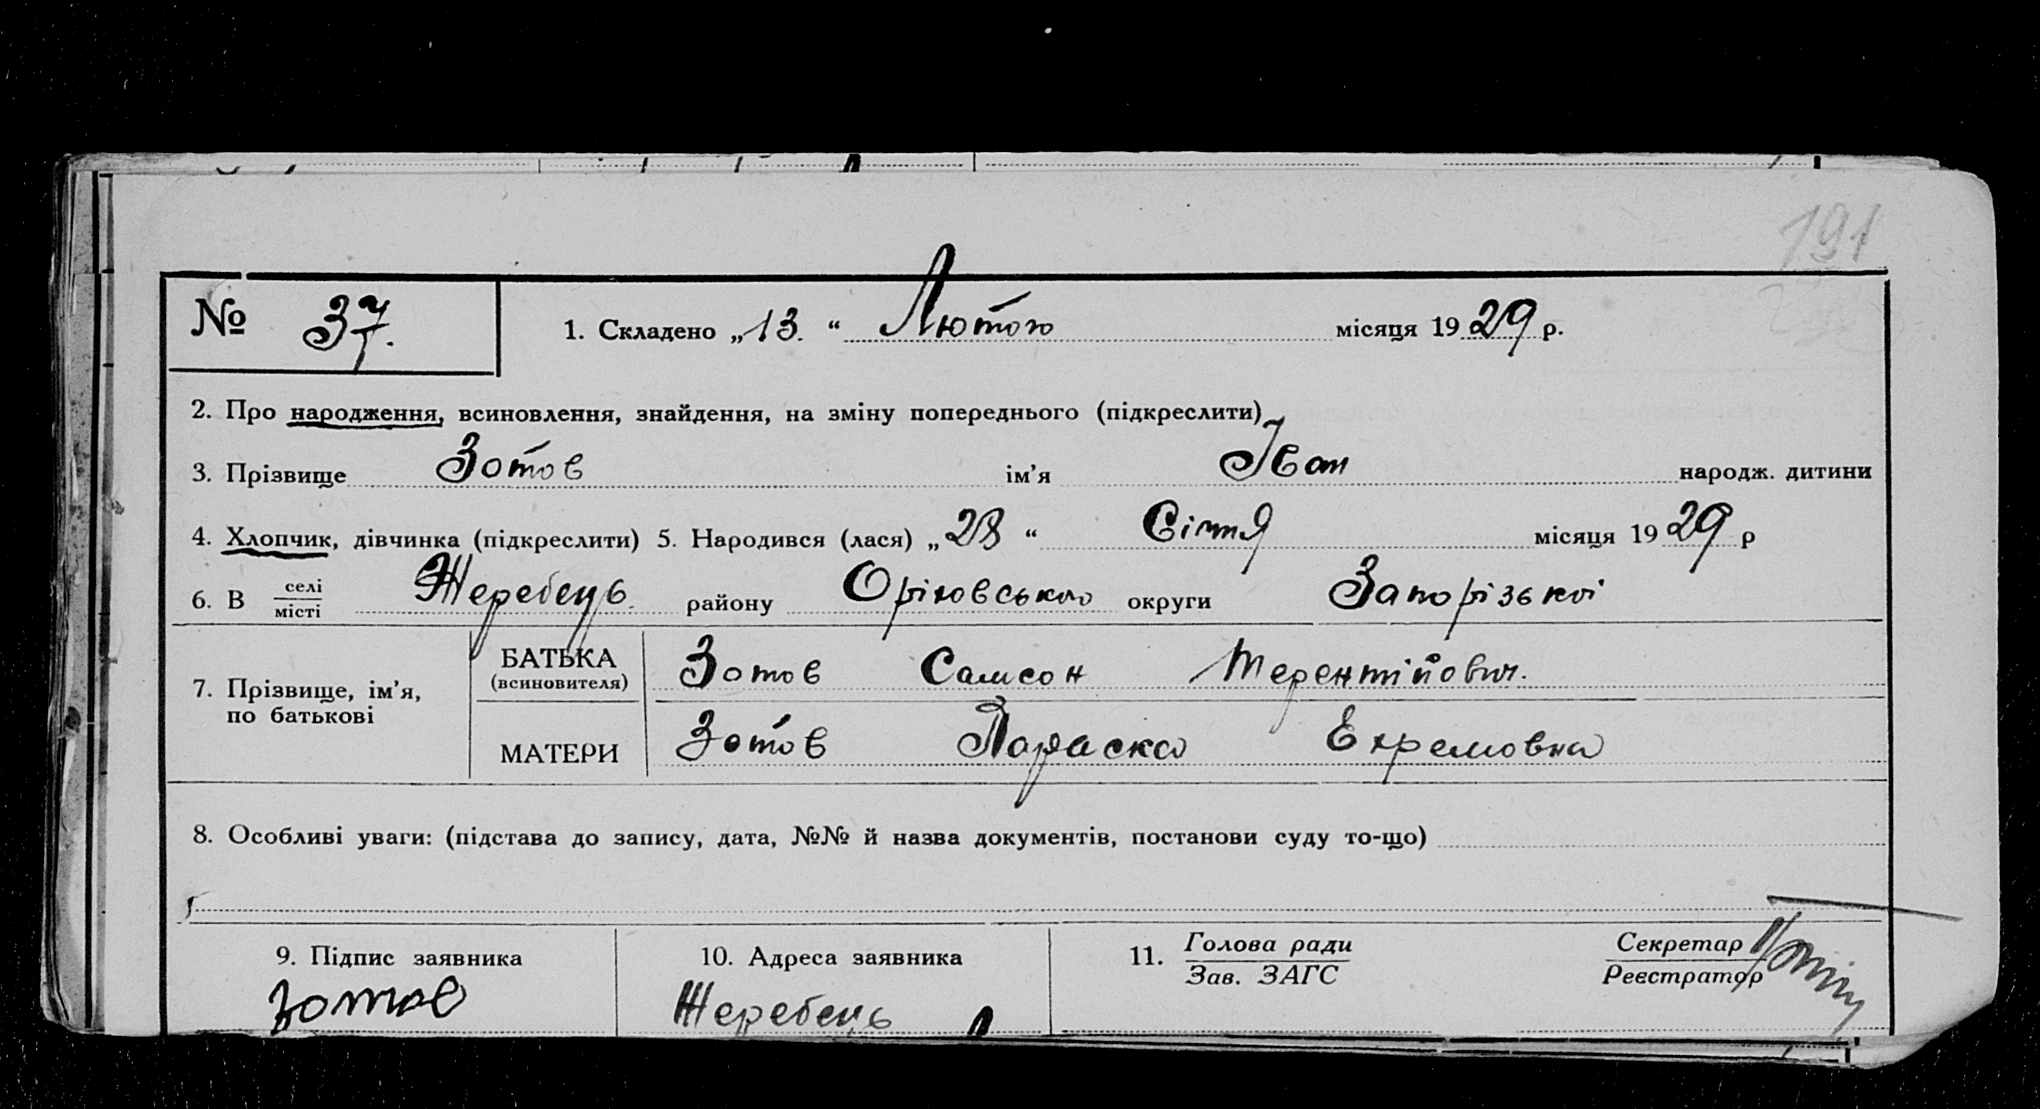 191
№ 37.
1. Складено „13.“ Лютого місяця 1929 р.
2. Про народження, всиновлення, знайдення, на зміну попереднього (підкреслити)
3. Прізвище Зотов ім'я Іван народж. дитини
4. Хлопчик, дівчинка (підкреслити) 5. Народився (лася) „28“ Січня місяця 1929 р
6. В селі місті Жеребець району Оріховського округи Запорізької
7. Прізвище, ім'я, по батькові
БАТЬКА (всиновителя) Зотов Самсон Терентійович.
МАТЕРИ Зотов Параска Ехремовна
8. Особливі уваги: (підстава до запису, дата, №№ й назва документів, постанови суду то-що)
9. Підпис заявника 10. Адреса заявника 11. Голова ради Секретар
Зав. ЗАГС Реєстратор
Зотов Жеребець